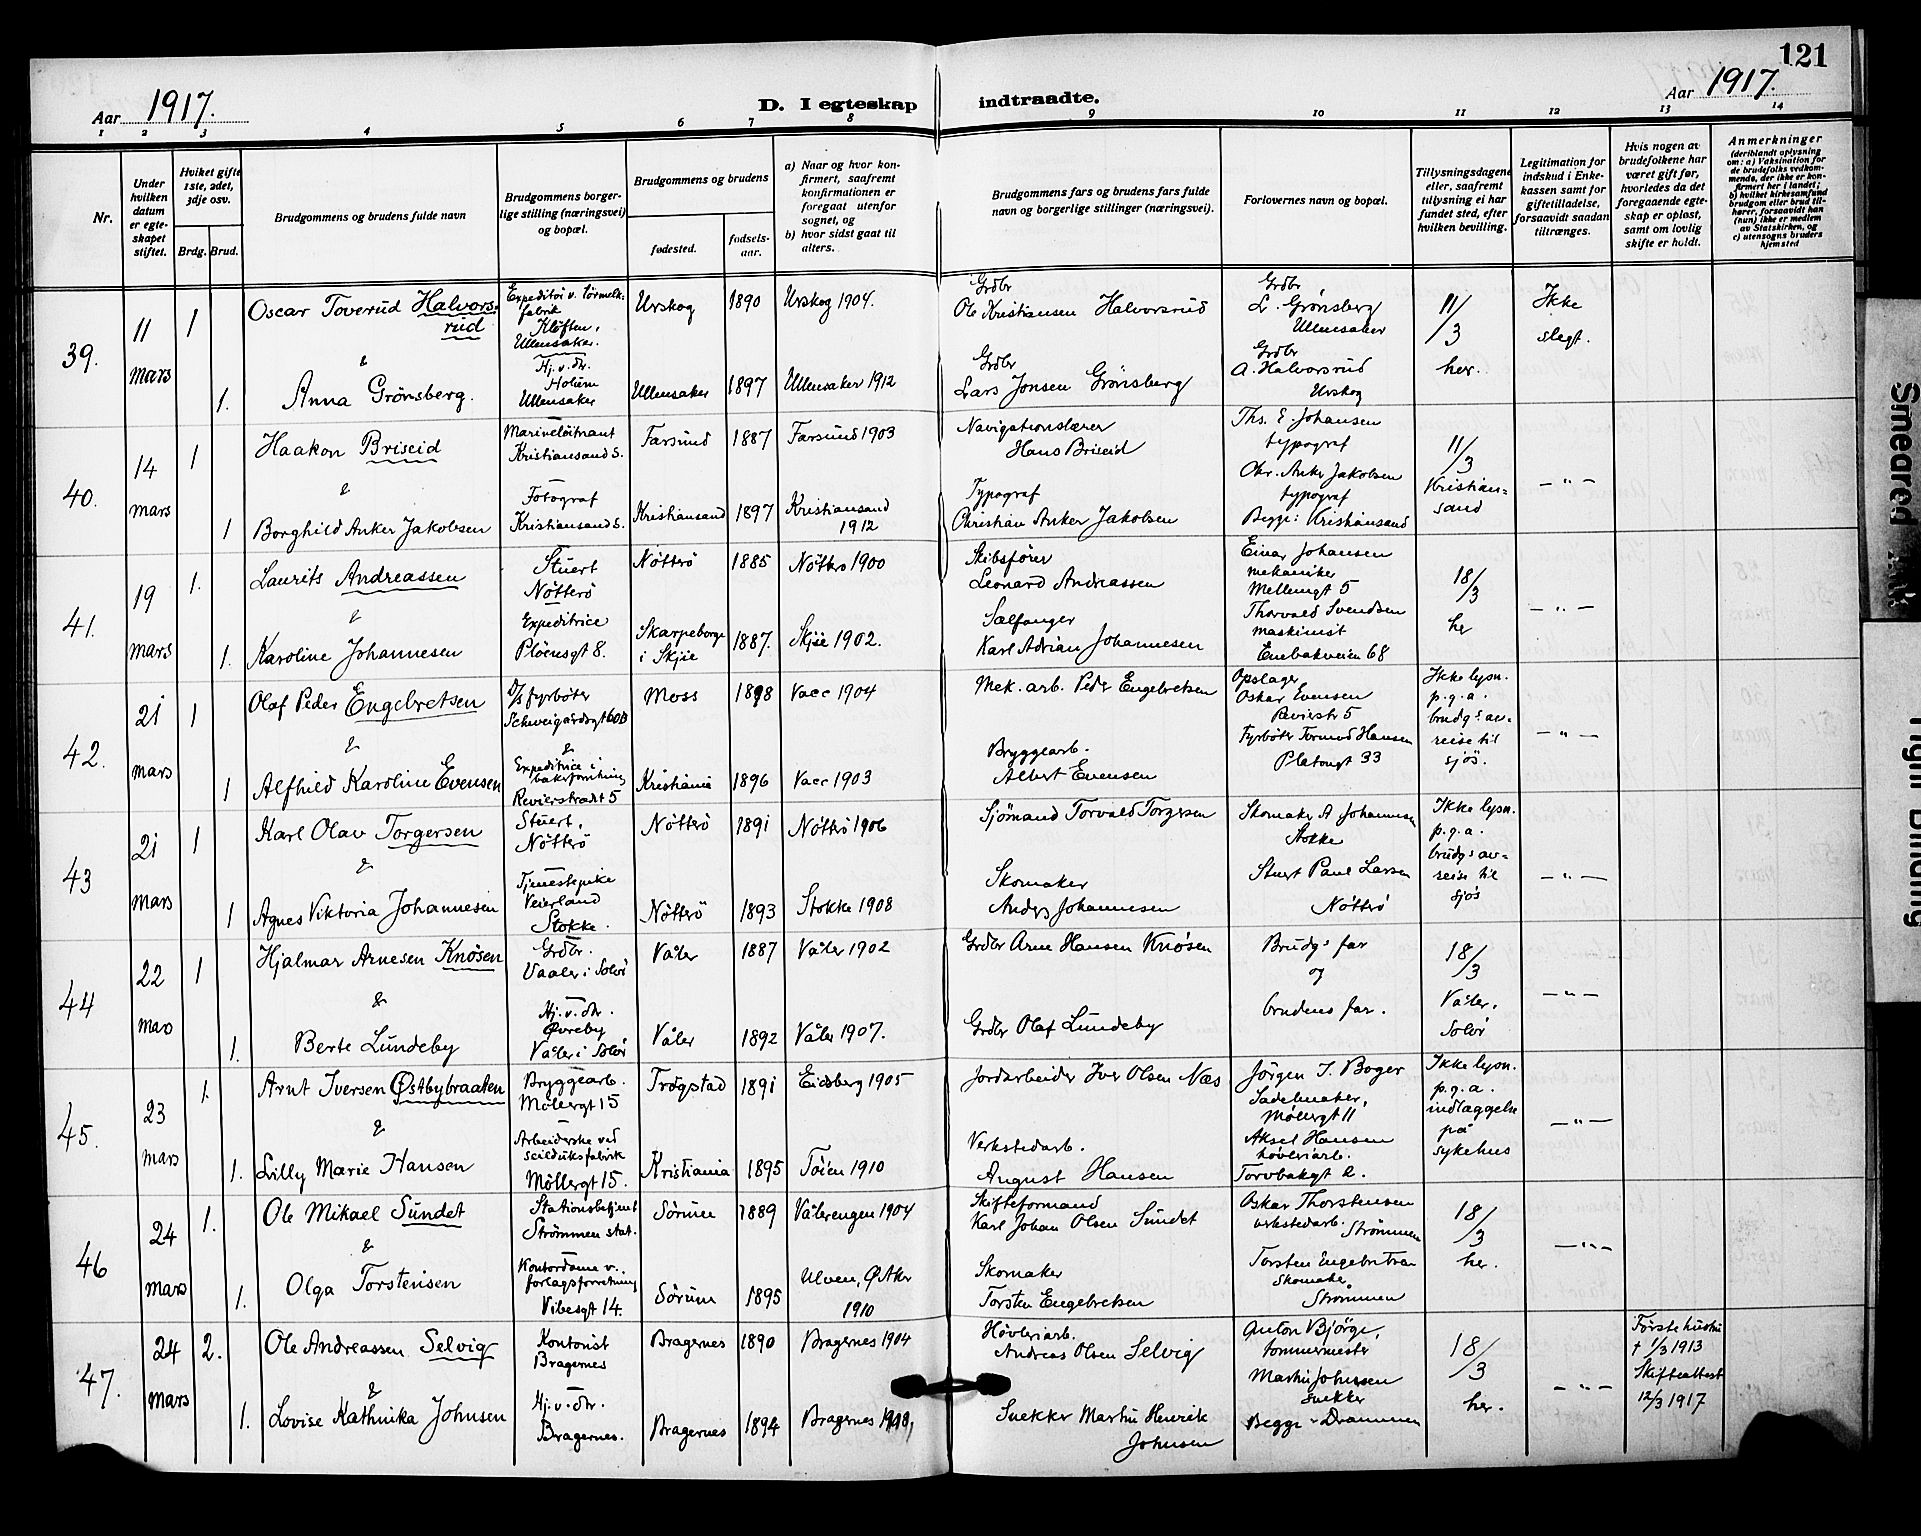 121
Aar 1917.
D. I egteskap indtraadte.
Aar 1917.
1 2 3 4 5 6 7 8 9 10 11 12 13 14
Nr.
Under hvilken datum er egteskapet stiftet.
Hvilket gifte 1ste, 2det, 3dje osv.
Brdg. Brud.
Brudgommens og brudens fulde navn
Brudgommens borgerlige stilling (næringsvei) og bopæl.
Brudgommens og brudens
fødested.
fødselsaar.
a) Naar og hvor konfirmert, saafremt konfirmationen er foregaat utenfor sognet, og
b) hvor sidst gaat til alters.
Brudgommens fars og brudens fars fulde navn og borgerlige stillinger (næringsvei).
Forlovernes navn og bopæl.
Tillysningsdagene eller, saafremt tillysning ei har fundet sted, efter hvilken bevilling.
Legitimation for indskud i Enkekassen samt for giftetilladelse, forsaavidt saadan tiltrænges.
Hvis nogen av brudefolkene har været gift før, hvorledes da det foregaaende egteskap er opløst, samt om lovlig skifte er holdt.
Anmerkninger
(deriblandt oplysning om: a) Vaksination for de brudefolks vedkommende, der ikke er konfirmert her i landet; b) hvilket kirkesamfund brudgom eller brud tilhører, forsaavidt han (hun) ikke er medlem av Statskirken, og c) utensogns bruders hjemsted
39.
11 mars
1
Oscar Toverud Halvorsrud
Expeditør v. tørmelkfabrik
Kløften,
Ullensaker.
Urskog
1890
Urskog 1904.
Grdbr
Ole Kristiansen Halvorsrud
Grdbr
L. Grønsberg
Ullensaker
11/3
Ikke slegt.
&
1.
Anna Grønsberg.
Hj. v. dr.
Holum
Ullensaker
Ullensaker
1897
Ullensaker 1912
Grdbr
Lars Jonsen Grønsberg
Grdbr
A. Halvorsrud
Urskog
her.
40.
14 mars
1
Haakon Briseid
Marineløitnant
Kristiansand S.
Farsund
1887
Farsund 1903
Navigationslærer
Hans Briseid
Ths. E Johansen
typograf
11/3
Kristiansand
— " —
&
1
Borghild Anker Jakobsen
Fotograf
Kristiansand S.
Kristiansand
1897
Kristiansand
1912
Typograf
Christian Anker Jakobsen
Chr. Anker Jakobsen
typograf
Begge: Kristiansand
41.
19 mars
1.
Laurits Andreassen
Stuert
Nøtterø
Nøtterø
1885
Nøtterø 1900
Skibsfører
Leonard Andreassen
Einar Johansen
mekaniker
Mellemgt 5
18/3
her
— " —
&
1.
Karoline Johannesen
Expeditrice
Pløensgt 8.
Skarpeborge
i Skjie
1887.
Skjie 1902.
Sælfanger
Karl Adrian Johannesen
Thorvald Svendsen
maskinist
Enebakveien 68
42.
21 mars
1
Olaf Peder Engebretsen
D/s fyrbøter
Schweigaardsgt 60B
Moss
1898
Vacc 1904
Mek. arb. Peder Engebretsen
Opslager
Oskar Evensen
Revierstr 5
Ikke lysn.
p.g.a.
brudgs avreise til
sjøs.
— " —
&
1
Alfhild Karoline Evensen
&
Expeditrice i
bakerforretning
Revierstrædt 5
Kristiania
1896
Vacc 1903
Bryggearb.
Albert Evensen
Fyrbøter Tormod Hansen
Platousgt 33
43
21 mars
1
Karl Olav Torgersen
Stuert,
Nøtterø
Nøtterø
1891
Nøtterø 1906
Sjømand Torvald Torgersen
Skomaker A Johannesen
Stokke
Ikke lysn.
p.g.a.
brudgs avreise til
sjøs
— " —
&
1
Agnes Viktoria Johannesen
Tjenestepike
Veierland
Stokke.
Nøtterø
1893
Stokke 1908
Skomaker
Anders Johannesen
Stuert Paul Larsen
Nøtterø
44
22 mars
1
Hjalmar Arnesen Knøsen
Grdbr.
Vaaler i Solør
Våler
1887
Våler 1902
Grdbr Arne Hansen Knøsen
Brudgs far
og
brudens far.
18/3
Våler,
Solør
— " —
&
1.
Berte Lundeby
Hj. v. dr.
Øvreby
Våler i Solør
Våler
1892
Våler 1907.
Grdbr Olaf Lundeby
45.
23 mars
1.
Arnt Iversen Østbybraaten
Bryggearb.
Møllergt 15
Trøgstad
1891
Eidsberg 1905
Jordarbeider Iver Olsen Næs
Jørgen I. Boger
Sadelmaker,
Møllergt 11
Ikke lysn.
p.g.a.
indlæggelse
på
sykehus
— " —
&
1.
Lilly Marie Hansen
Arbeiderske ved
seilduksfabrik
Møllergt 15.
Kristiania
1895
Tøien 1910
Verkstedarb.
August Hansen
Aksel Hansen
høvleriarb.
Torvbakgt 2.
46
24 mars
1.
Ole Mikael Sundet
Stationsbetjent
Strømmen stat.
Sørum
1889
Vålerengen 1904
Skifteformand
Karl Johan Olsen Sundet
Oskar Thorstensen
verkstedarb. Strømmen
18/3
her.
— " —
&
1.
Olga Torstensen
Kontordame v.
forlagsforretning
Vibesgt 14.
Sørum
1895
Ulven, Ø Aker
1910
Skomaker
Torsten Engebretsen
Torsten Engebretsen
Skomaker
Strømmen
47.
24 mars
2.
Ole Andreassen Selvig
Kontorist
Bragernes
Bragernes
1890
Bragernes 1904
Høvleriarb.
Andreas Olsen Selvig
Anton Bjørge,
tømmermester
18/3
her.
— " —
Første hustru
† 1/3 1913
Skifteattest
12/3 1917
&
1.
Lovise Kathinka Johnsen
Hj. v. dr.
Bragernes.
Bragernes
1894
Bragernes
Snekker Martin Henrik
Johnsen
Martin Johnsen
snekker
Begge - Drammen
Smeared Ink
Tight Binding